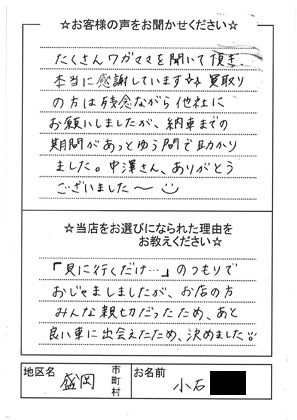 ☆お客様の声をお聞かせください☆
たくさんワガママを聞いて頂き、
本当に感謝しています☆彡 買取り
の方は残念ながら他社に
お願いしましたが、納車までの
期間があっとゆう間で助かり
ました。中澤さん、ありがとう
ございました〜
☆当店をお選びになられた理由を
お教えください☆
「見に行くだけ…」のつもりで
おじゃましましたが、お店の方
みんな親切だったため、あと
良い車に出会えたため、決めました
地区名 盛岡 市町村 お名前 小石